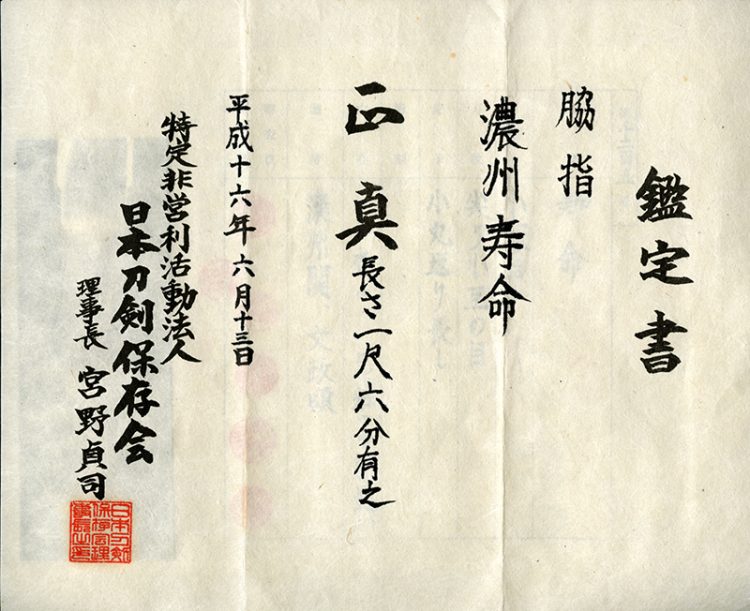 鑑定書
脇指
濃州寿命
正真 長さ一尺六分有之
平成十六年六月十三日
特定非営利活動法人
日本刀剣保存会
理事長 宮野貞司